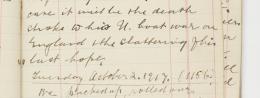 cure it will be the death
stroke to his U. boat war on
England & the shattering of his
last hope.
Tuesday October 2. 1917. (1156)
We packed up, rolled our